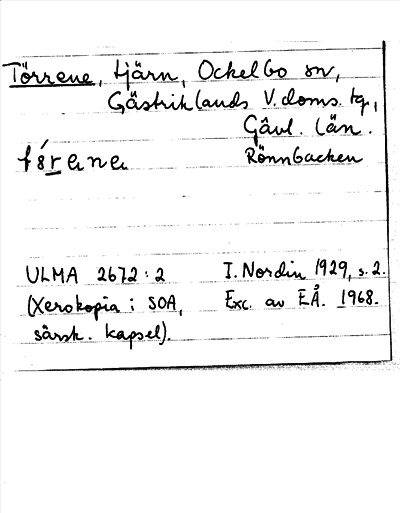 Törrene, tjärn, Ockelbo sn,
Gästriklands V. doms. tg,
Gävl. län.
Rönnbacken
ULMA 2672:2 I. Nordin 1929, s. 2.
(Xerokopia i SOA, Exc. av EÅ. 1968.
särsk. kapsel).